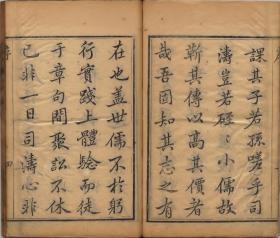 課其子若孫嗟乎司
濤豈若硜硜小儒故
靳其傳以高其價者
哉吾固知其志之有
在也蓋世儒不於躬
行實踐上體驗而徒
于章句間聚訟不休
已非一日司濤心非
序
四